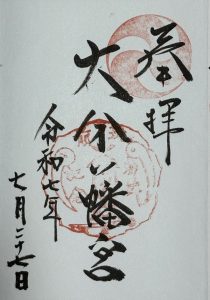 奉拝
大分八幡宮
令和七年
七月二十七日